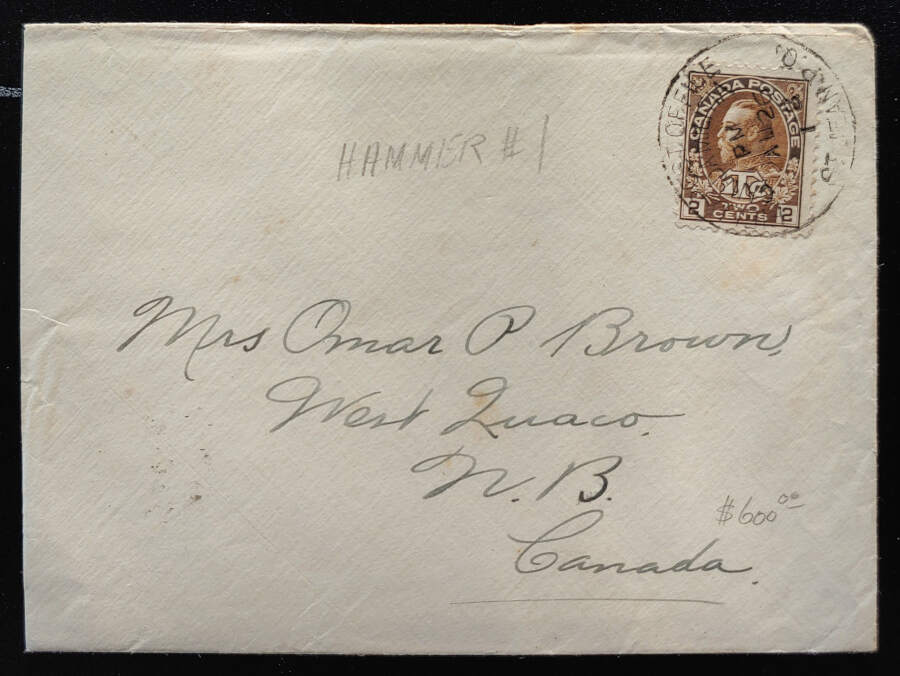 HAMMER #1
CANADA POSTAGE
1TC
2 TWO CENTS 2
OFFICE
PM
Mrs Omar P Brown,
West Quaco.
N. B.
$600.00
Canada.